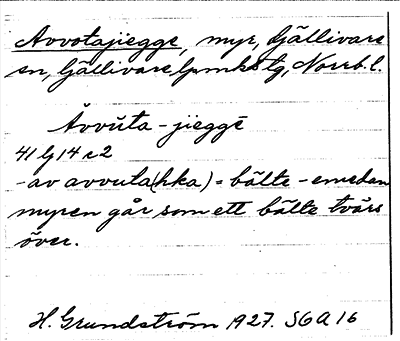 Avvotajiegge, myr, Gällivare
sn, Gällivare lpmks tg, Norrb. l.
Ávvūta - jieggē
41 G 14 c 2
- av avvuta(hka) = bälte - emedan
myren går som ett bälte tvärs
över.
H. Grundström 1927. SGA 16